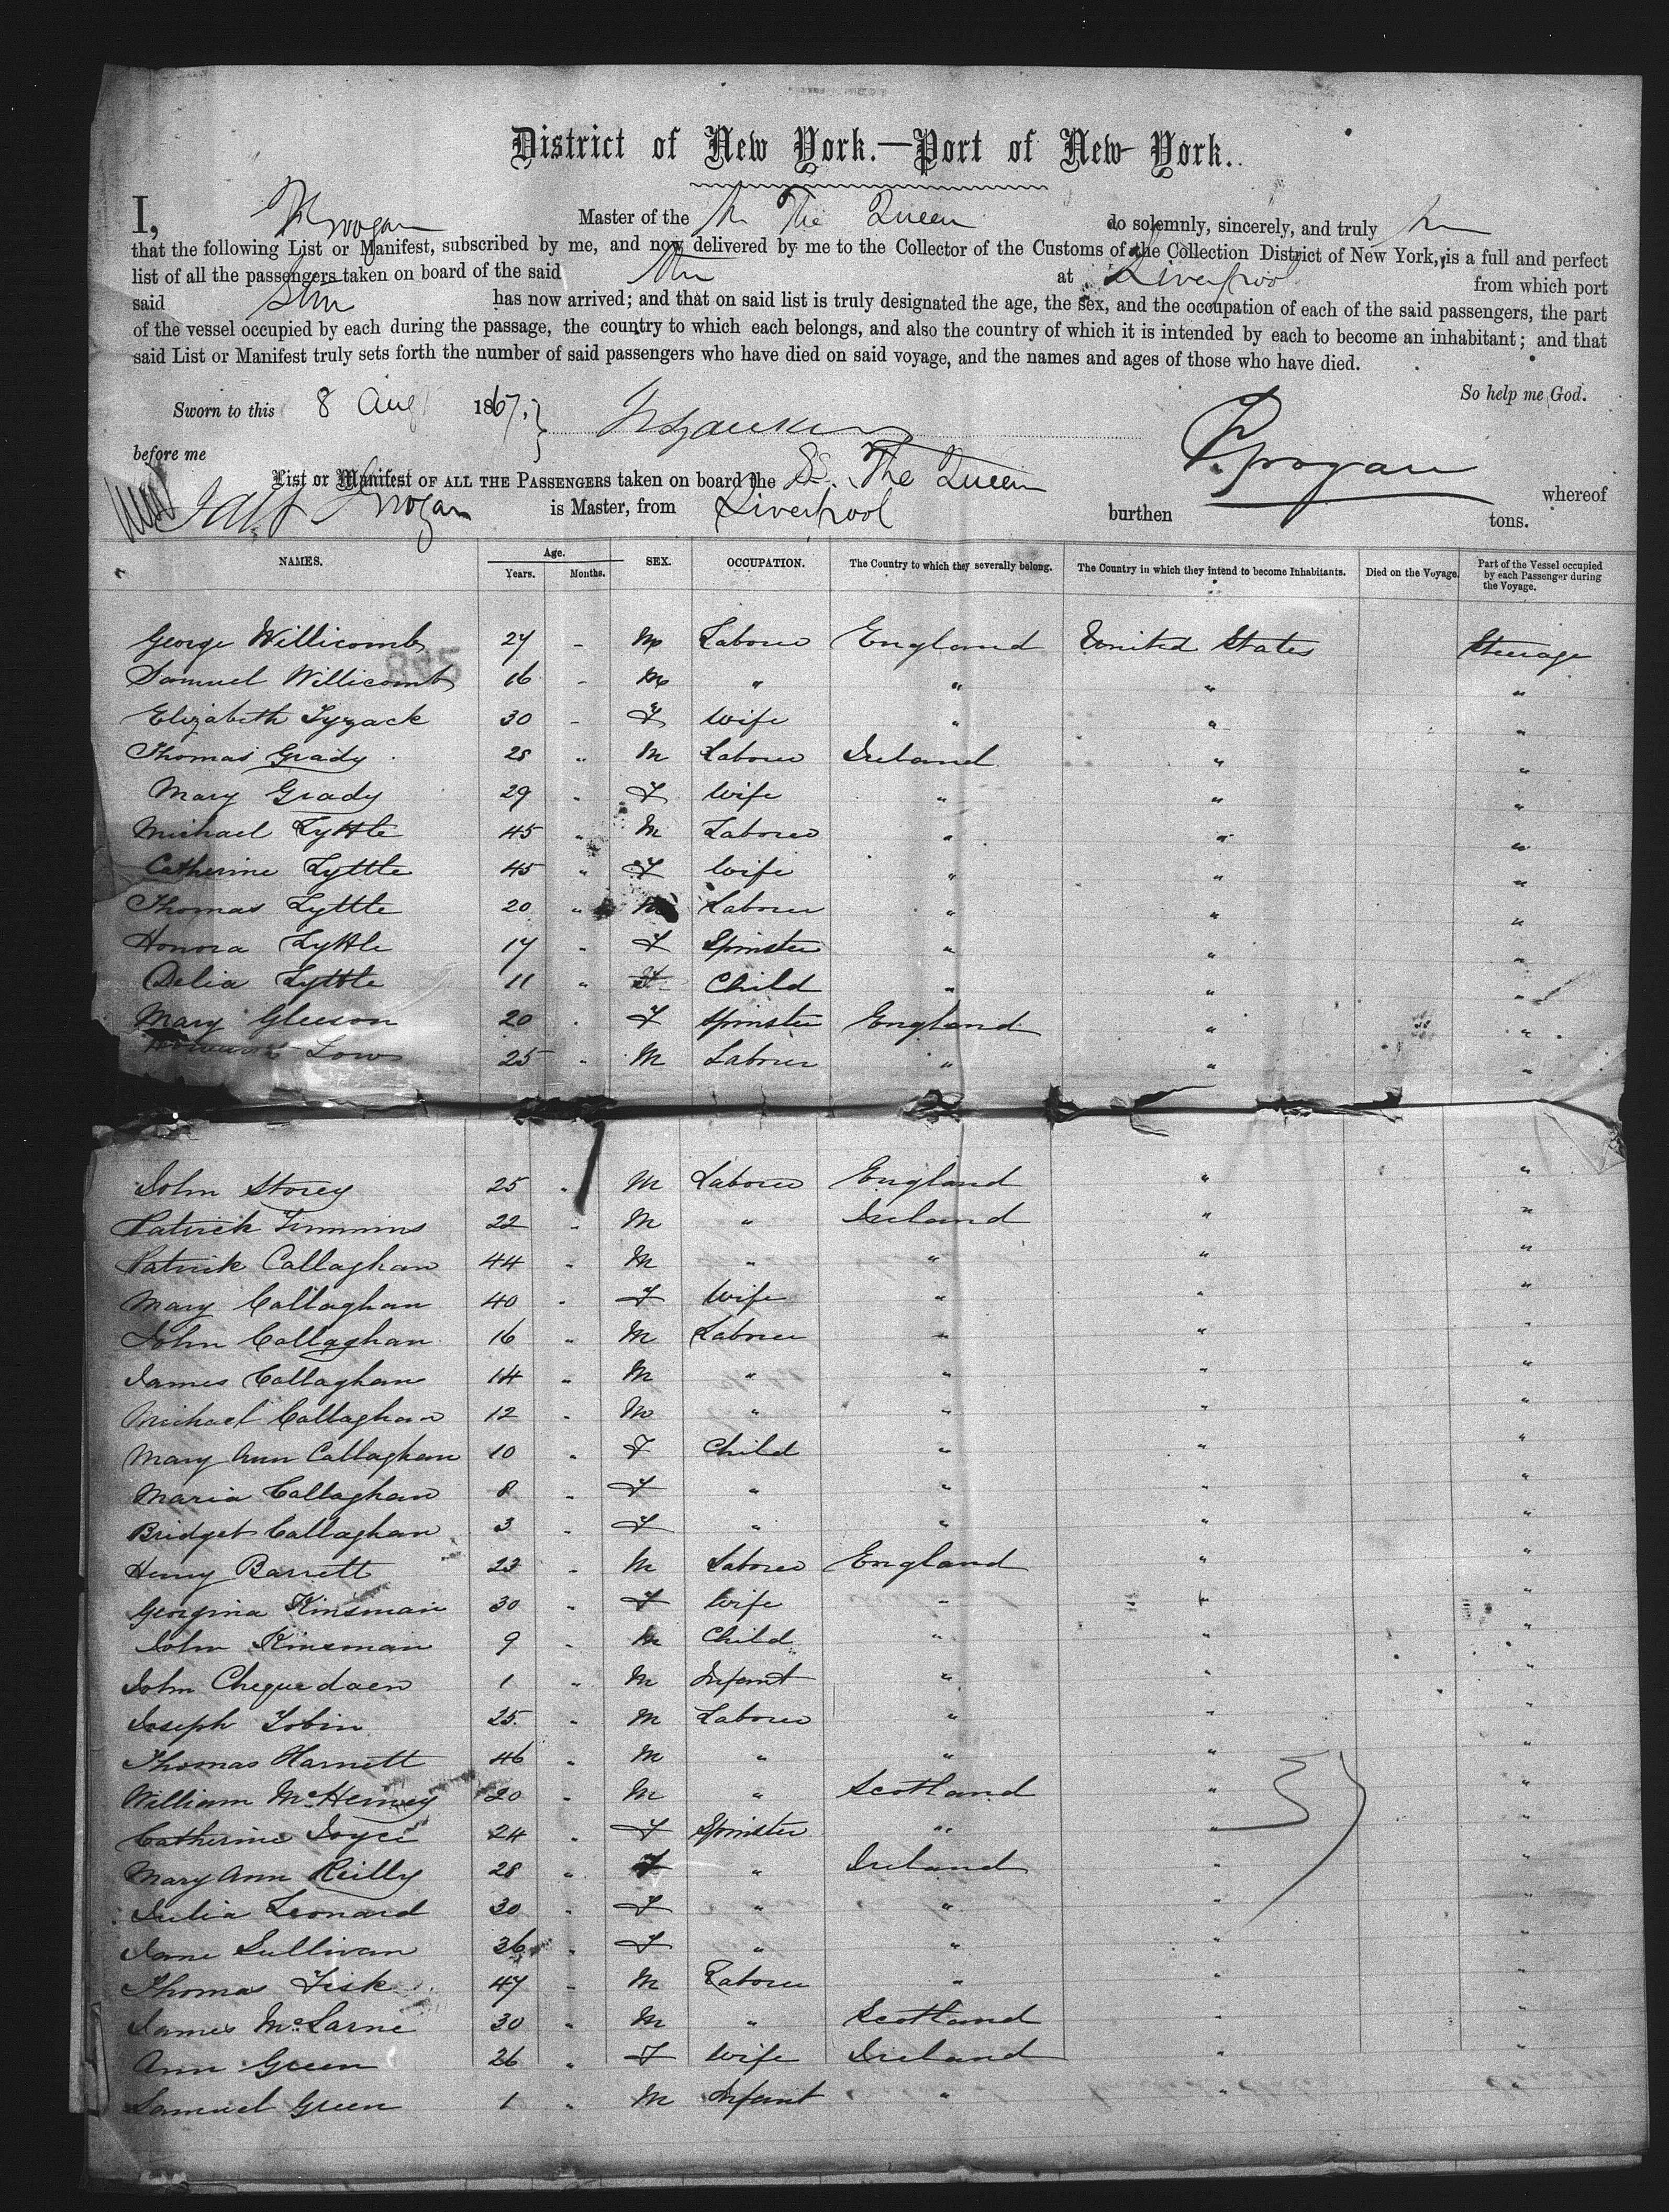 District of New York.—Port of New York.
I, Grogan Master of the The Queen do solemnly, sincerely, and truly
that the following List or Manifest, subscribed by me, and now delivered by me to the Collector of the Customs of the Collection District of New York, is a full and perfect
list of all the passengers taken on board of the said at Liverpool from which port
said Str has now arrived; and that on said list is truly designated the age, the sex, and the occupation of each of the said passengers, the part
of the vessel occupied by each during the passage, the country to which each belongs, and also the country of which it is intended by each to become an inhabitant; and that
said List or Manifest truly sets forth the number of said passengers who have died on said voyage, and the names and ages of those who have died.
So help me God.
Sworn to this 8 Aug 1867.
before me
Grogan
List or Manifest OF ALL THE PASSENGERS taken on board the SS. The Queen whereof
Grogan is Master, from Liverpool burthen tons.
NAMES. Age. Years. Months. SEX. OCCUPATION. The Country to which they severally belong. The Country in which they intend to become Inhabitants. Died on the Voyage. Part of the Vessel occupied by each Passenger during the Voyage.
George Willicomb 27 - M Labourer England United States Steerage
845
Samuel Willicomb 16 - M " " " "
Elizabeth Tyzack 30 - F Wife " " "
Thomas Grady 28 " M Labourer Ireland " "
Mary Grady 29 " F Wife " " "
Michael Lyttle 45 " M Labourer " " "
Catherine Lyttle 45 " F Wife " " "
Thomas Lyttle 20 " M Labourer " " "
Honora Lyttle 17 " F Spinster " " "
Delia Lyttle 11 " F Child " " "
Mary Gleeson 20 " F Spinster England " "
Low 25 " M Labourer " " "
John Storey 25 " M Labourer England " "
Patrick Timmins 22 " M " Ireland " "
Patrick Callaghan 44 " M " " " "
Mary Callaghan 40 " F Wife " " "
John Callaghan 16 " M Labourer " " "
James Callaghan 14 " M " " " "
Michael Callaghan 12 " M " " " "
Mary Ann Callaghan 10 " F Child " " "
Maria Callaghan 8 " F " " " "
Bridget Callaghan 3 " F " " " "
Henry Barrett 23 " M Labourer England " "
Georgina Kinsman 30 " F Wife " " "
John Kinsman 9 " M Child " " "
John Cheguedaen 1 " M Infant " " "
Joseph Tobin 25 " M Labourer " " "
Thomas Harnett 46 " M " " " "
William McHerney 20 " M " Scotland " "
Catherine Joyce 24 " F Spinster " " "
Mary Ann Reilly 28 " F " Ireland " "
Julia Leonard 30 " F " " " "
Jane Sullivan 36 " F " " " "
Thomas Fisk 47 " M Labourer " " "
James McLarne 30 " M " Scotland " "
Ann Green 26 " F Wife Ireland " "
Samuel Green 1 " M Infant " "